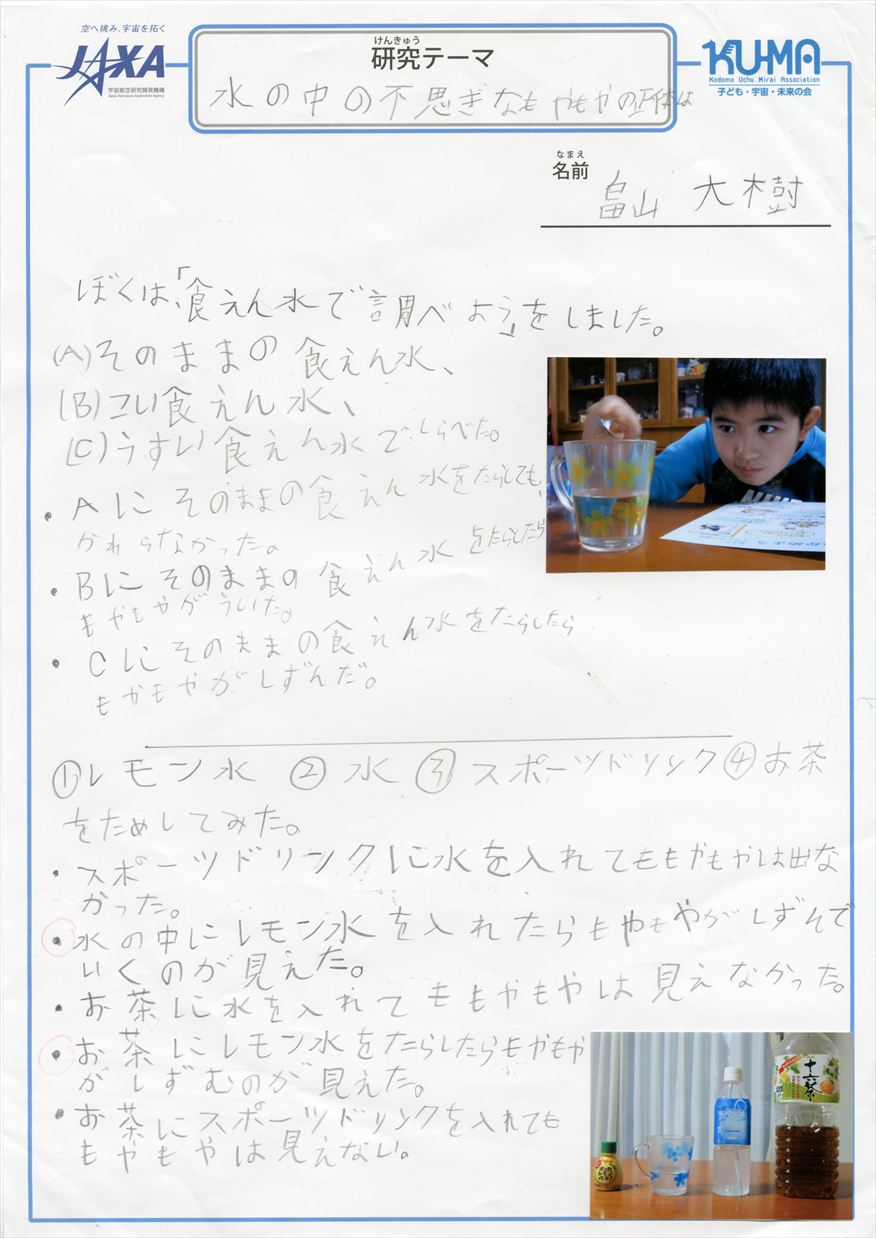 空へ挑み、宇宙を拓く
JAXA
宇宙航空研究開発機構
Japan Aerospace Exploration Agency
けんきゅう
研究テーマ
水の中の不思ぎなもやもやの正体は
KU-MA
Kodomo Uchu Mirai Association
子ども・宇宙・未来の会
なまえ
名前
畠山 大樹
ぼくは、「食えん水で調べよう」をしました。
(A)そのままの食えん水、
(B)こい食えん水、
(C)うすい食えん水でしらべた。
・Aにそのままの食えん水をたらしても、
かわらなかった。
・Bにそのままの食えん水をたらしたら
もやもやがういた。
・Cにそのままの食えん水をたらしたら
もやもやがしずんだ。
①レモン水 ②水 ③スポーツドリンク④お茶
をためしてみた。
・スポーツドリンクに水を入れてももやもやは出な
かった。
・水の中にレモン水を入れたらもやもやがしずんで
いくのが見えた。
・お茶に水を入れてももやもやは見えなかった。
・お茶にレモン水をたらしたらもやもや
がしずむのが見えた。
・お茶にスポーツドリンクを入れても
もやもやは見えない。
十六茶